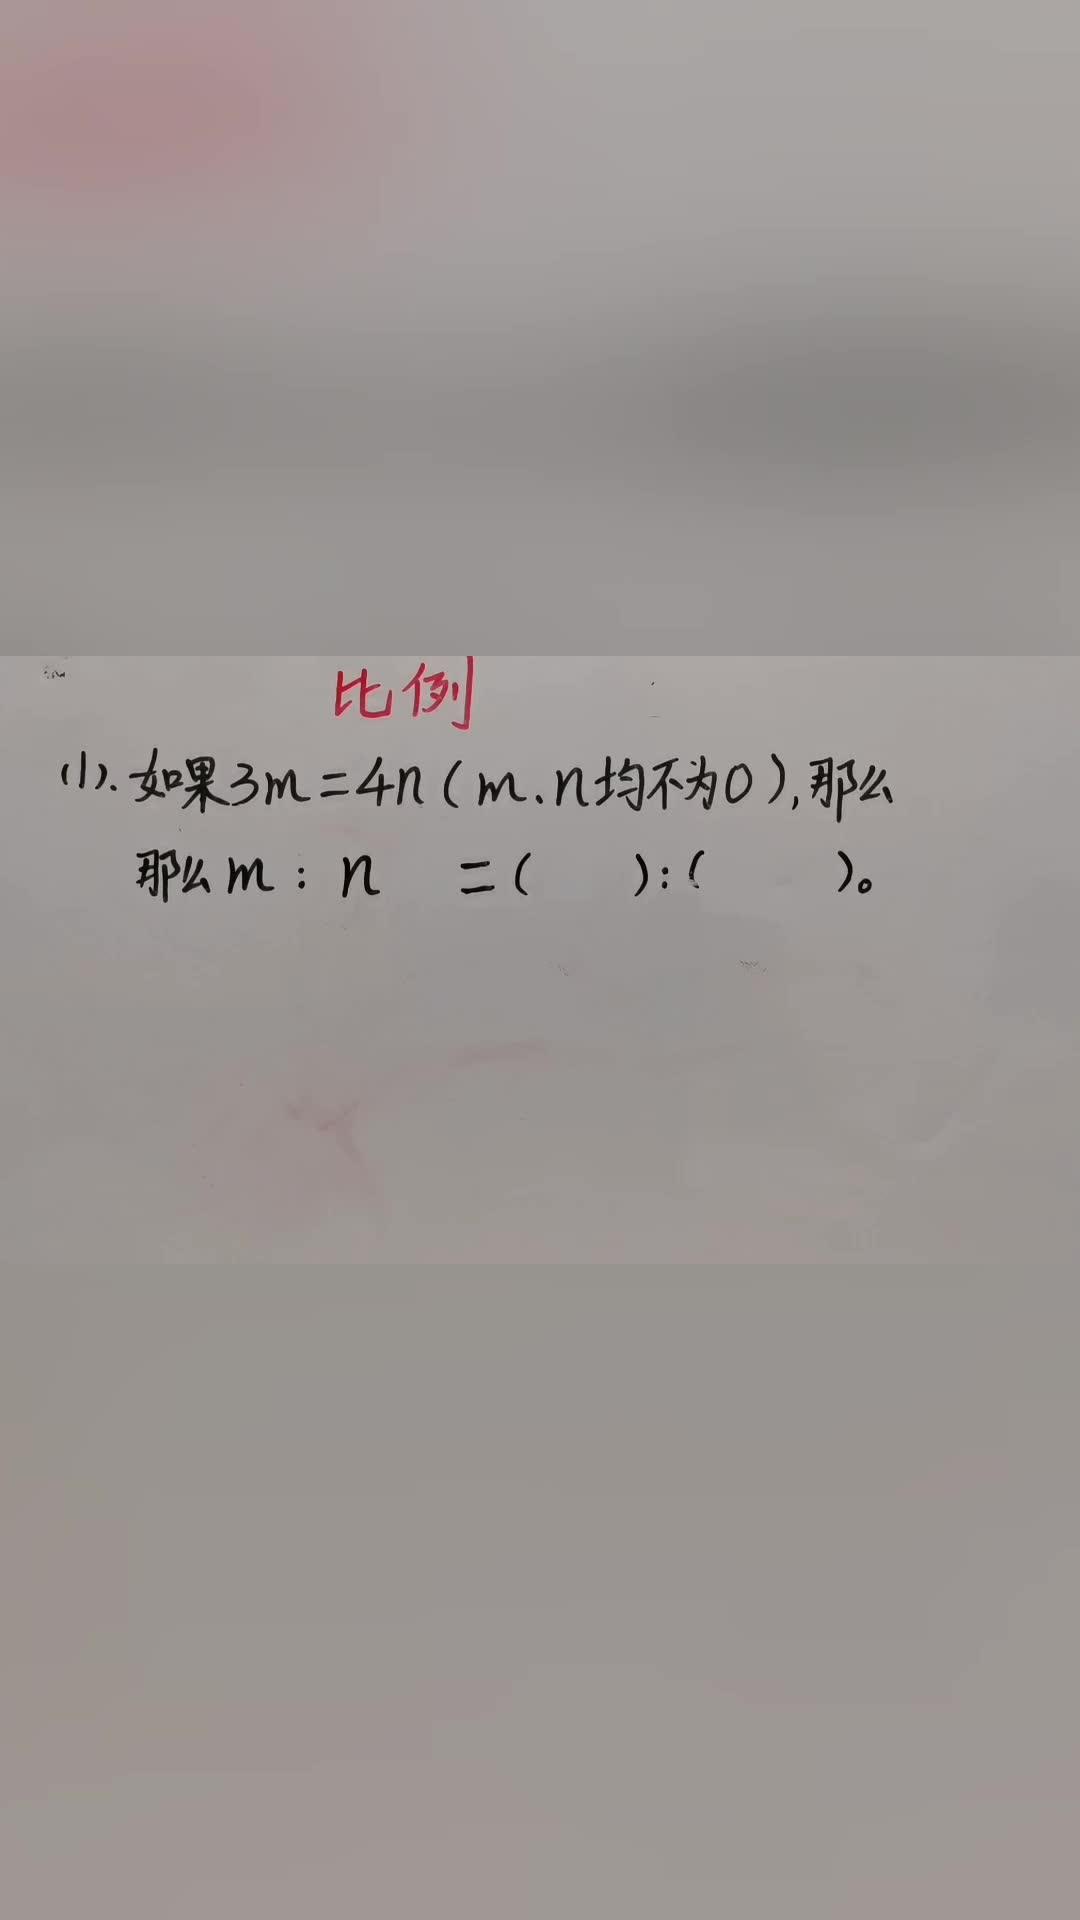 比例
(1).如果3m=4n(m、n均不为0),那么
那么m:n =( ):( )。